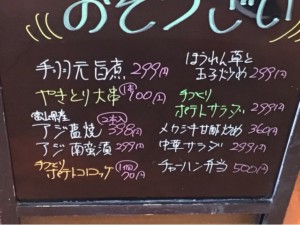 おそうざい
手羽元旨煮 299円
やきとり大串 1本 100円
富山県産
アジ塩焼 2本入 398円
アジ南蛮漬 299円
手づくり
ポテトコロッケ 1個 70円
ほうれん草と
玉子炒め 299円
手づくり
ポテトサラダ 299円
メカジキ甘酢炒め 360円
中華サラダ 299円
チャーハン弁当 500円